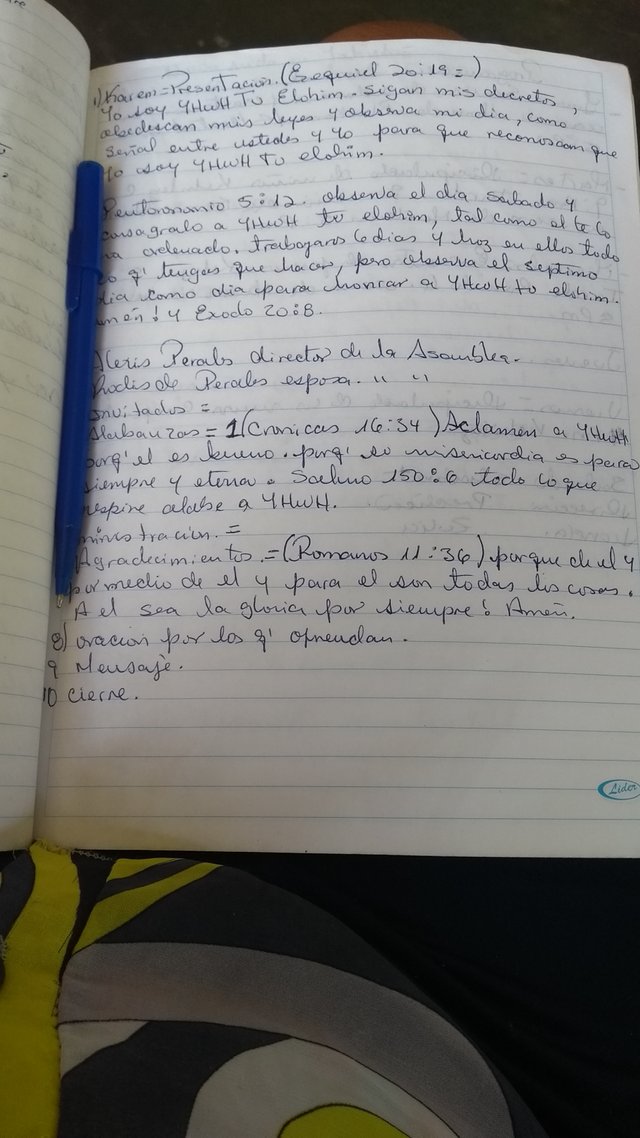 1) Karem = Presentacion. (Ezequiel 20:19 = )
Yo soy YHWH Tu Elohim. sigan mis decretos,
obedescan mis leyes y observa mi dia, como
señal entre ustedes y yo para que reconoscan que
Yo soy YHWH Tu elohim.
Deutoronomio 5:12. observa el dia sabado y
consagralo a YHWH tu elohim, tal como el te lo
ha ordenado. trabajaras 6 dias y haz en ellos todo
lo q' tengas que hacer, pero observa el septimo
dia como dia para honrar a YHWH tu elohim.
amén! y Exodo 20:8.
Aleris Perales director de la Asamblea.
de Perales esposa. " "
invitados =
Alabanzas = 1 (Cronicas 16:34) Aclamen a YHWH
porq' el es bueno. porq' su misericordia es para
siempre y eterna. Salmo 150:6 todo lo que
respire alabe a YHWH.
ministracion. =
Agradecimientos. = (Romanos 11:36) porque de el y
por medio de el y para el son todas las cosas.
A el sea la gloria por siempre! Amén.
8) oracion por los q' ofrendan.
9 Mensaje.
10 cierre.
Lider